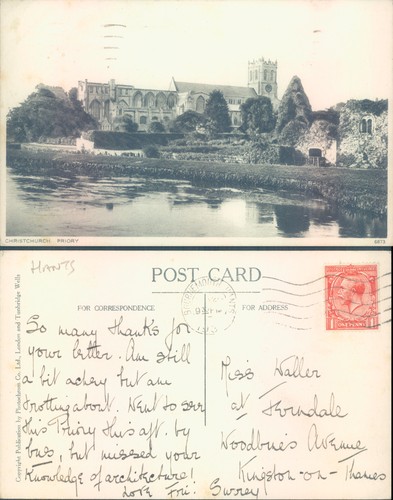 CHRISTCHURCH PRIORY
HANTS
POST CARD
FOR CORRESPONDENCE
FOR ADDRESS
So many thanks for
your letter. Am still
a bit achey but am
trotting about. Went to see
this Priory this aft. by
bus, but missed your
knowledge of architecture!
Love
Miss Waller
at Ferndale
Woodbines Avenue
Kingston-on-Thames
Surrey
Copyright Publication by Photochrom Co. Ltd., London and Tunbridge Wells